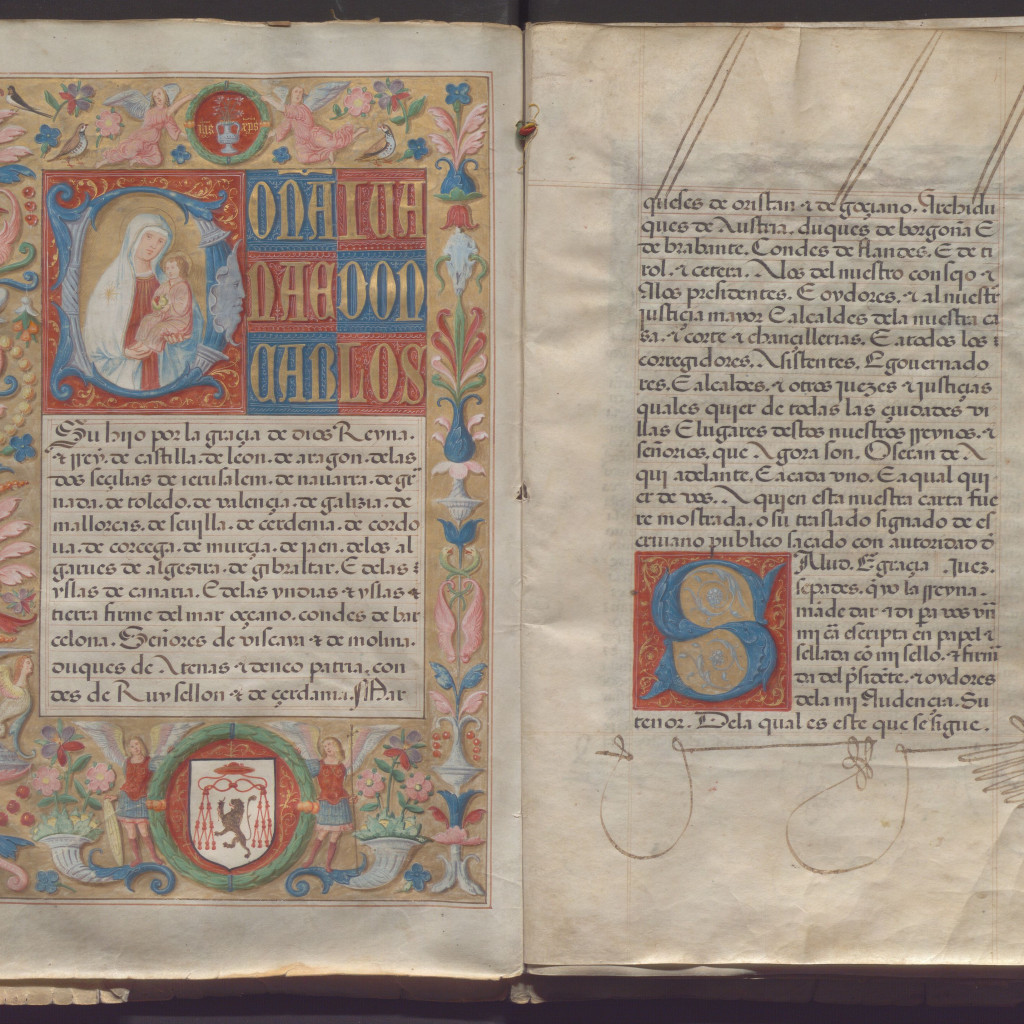 jħs xp̄s
DOÑA IUA
NA E DON
CARLOS
Su hijo por la graçia de dios Reyna.
⁊ rrey. de castilla. de leon. de aragon. delas
dos seçilias de ierusalem. de nauarra. de gr̄
nada. de toledo. de valençia. de galizia. de
mallorcas. de seuilla. de cerdenia. de cordo
ua. de corcega. de murçia. de jaen. delos al
garues de algesira. de gibraltar. E delas
yslas de canaria. E delas yndias ⁊ yslas ⁊
tierra firme del mar oçeano. condes de bar
celona. Señores de viscaya ⁊ de molina.
duques de Atenas ⁊ deneo patria, con
des de Ruysellon ⁊ de çerdania. Mar
queses de oristan ⁊ de goçiano. Archidu
ques de Austria. duques de borgoña E
de brabante. Condes de flandes. E de ti
rol. ⁊ cetera. Alos del nuestro consejo ⁊
Alos presidentes. E oydores. ⁊ al nuestr̄
justiçia mayor E alcaldes dela nuestra ca
sa. ⁊ corte ⁊ chançillerias. E atodos los
corregidores. Asistentes. E gouernado
res. E alcaldes. ⁊ otros juezes ⁊ justiçias
quales quier de todas las çiudades vi
llas E lugares destos nuestros rreynos. ⁊
señorios. que Agora son. O seran de A
qui adelante. E acada vno. E aqual qui
er de vos. A quien esta nuestra carta fue
re mostrada. o su traslado signado de es
criuano publico sacado con autoridad đ
Salud. E graçia. Juez.
sepades. q̄ yo la rreyna.
mādē dar ⁊ di para vos vn̄
mi cā escripta en papel ⁊
sellada cō mi sello. ⁊ firm
da del p̄sidēte. ⁊ oydores
dela mi Audençia. Su
tenor. Dela qual es este que se sigue.